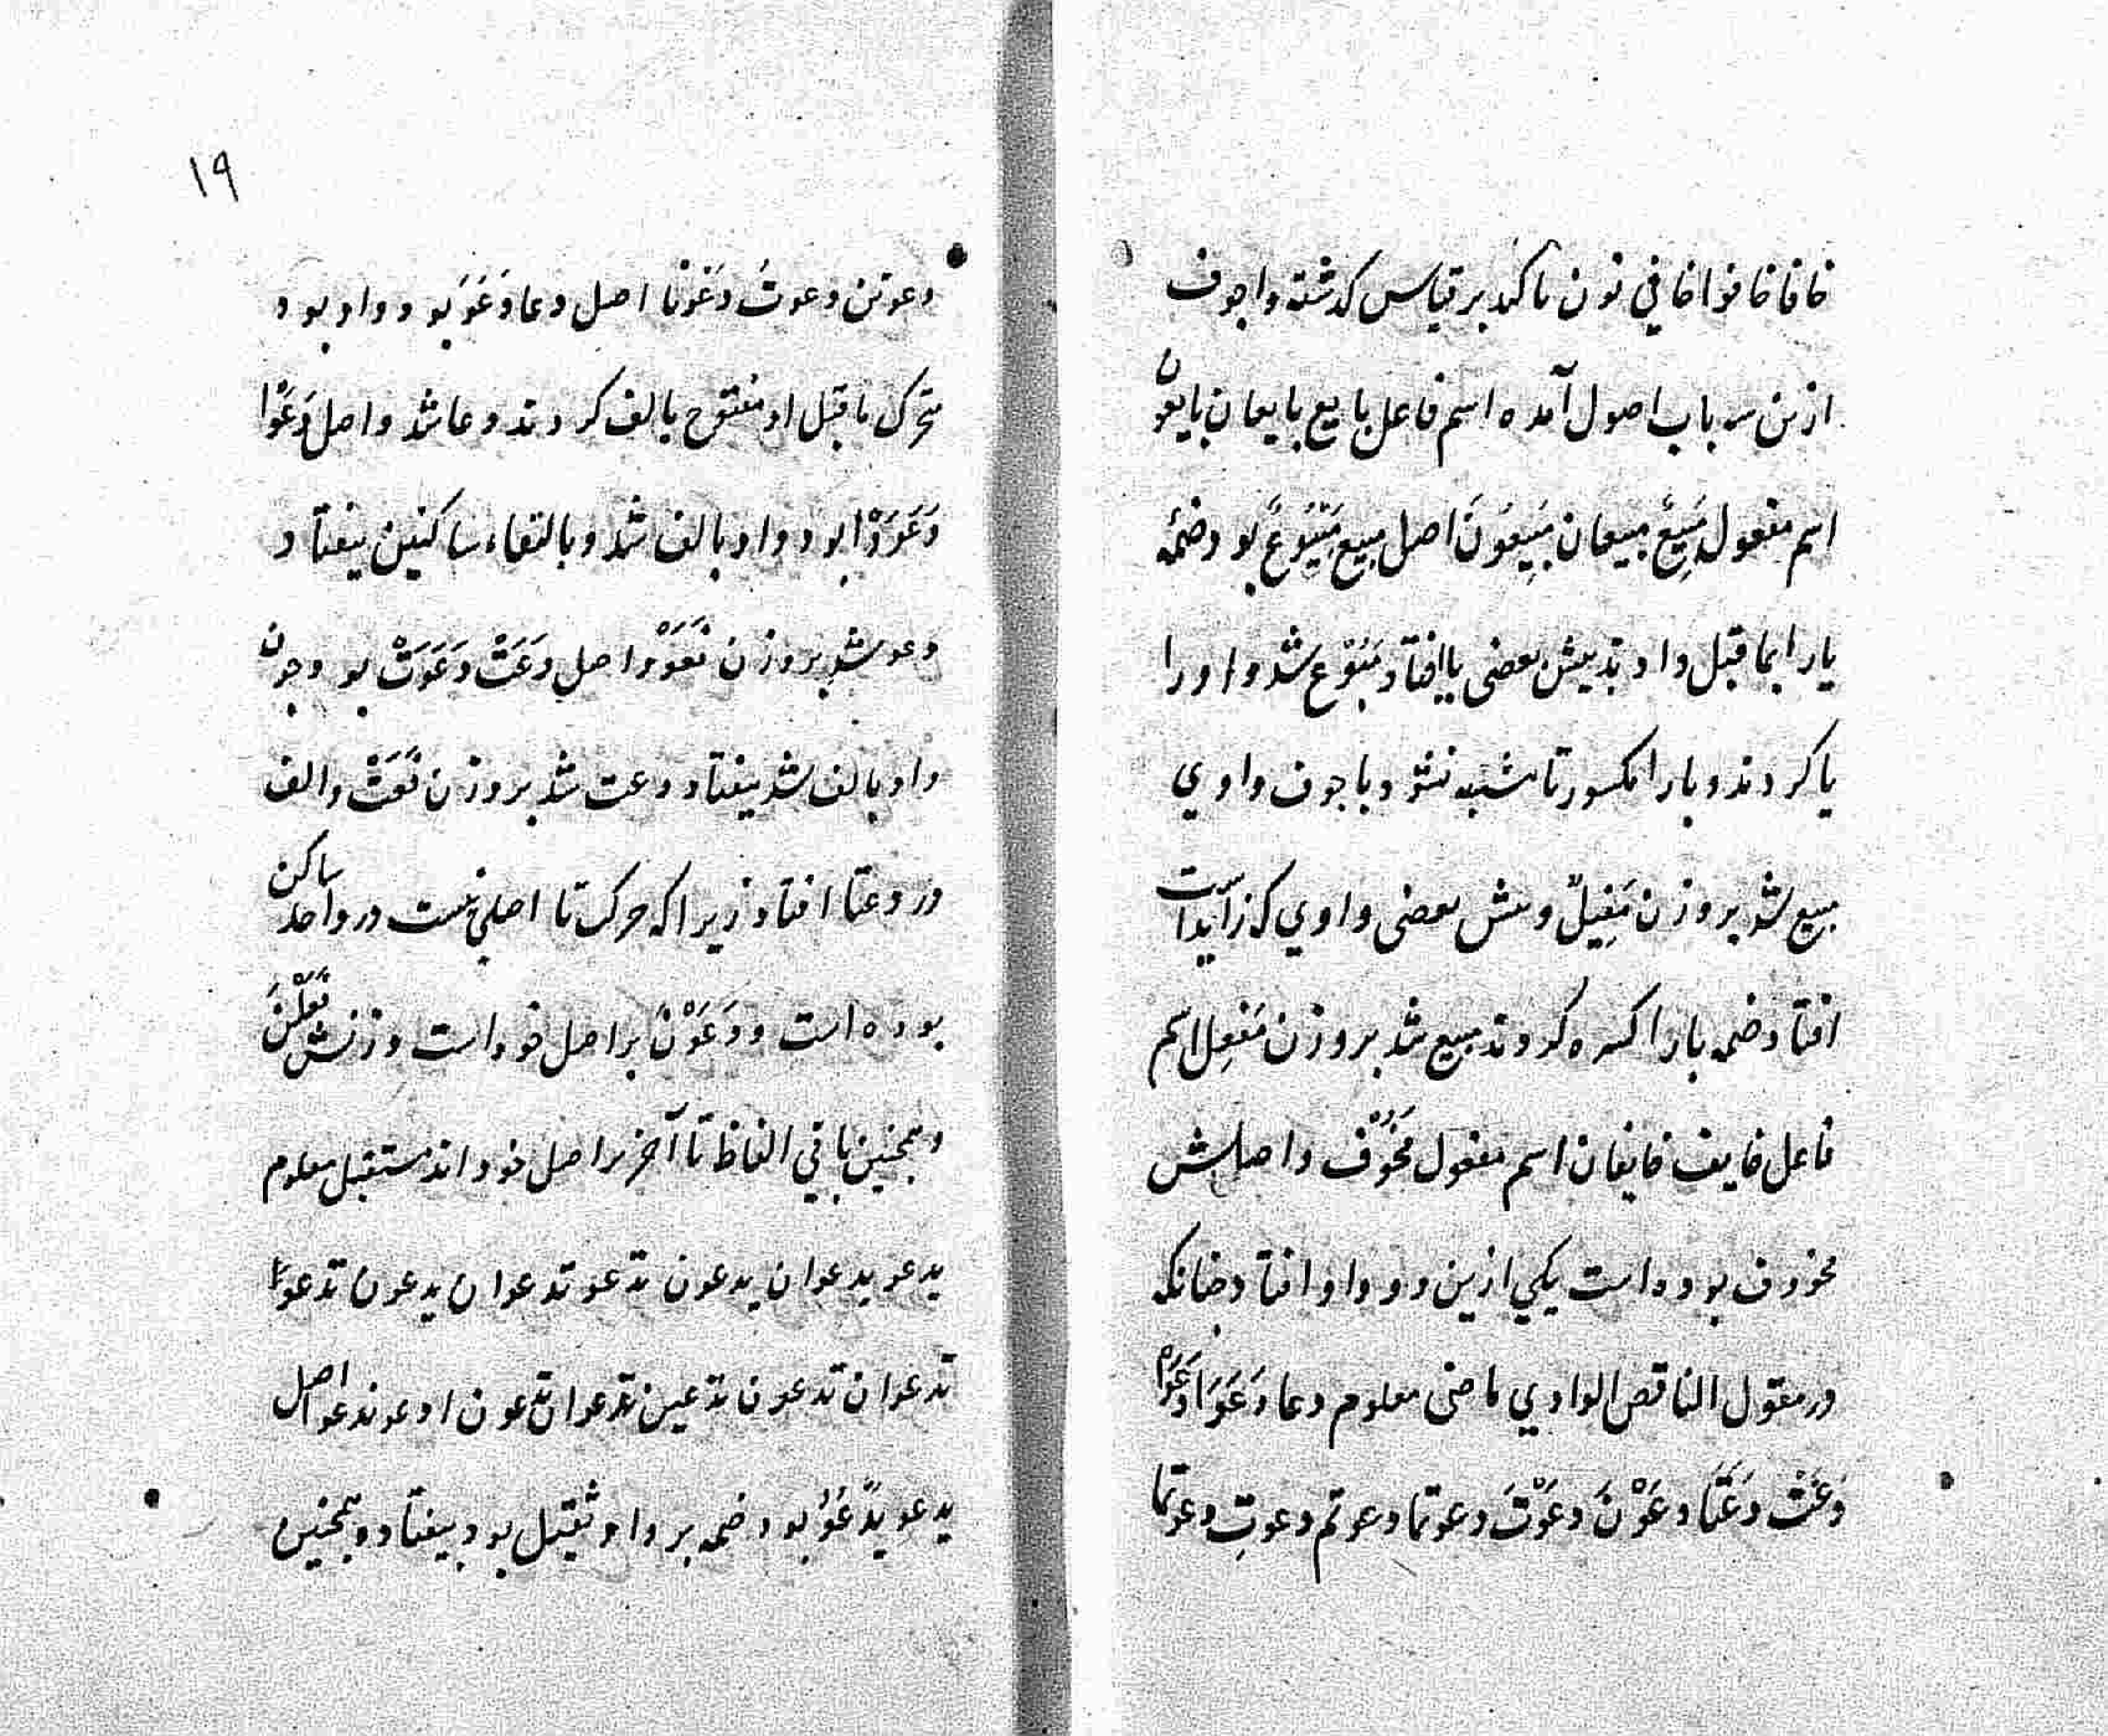 خافا خافوا خافي نون تاکید بر قیاس کذشته واجوف
ازین سه باب اصول آمده اسم فاعل بایع بایعان بایعون
اسم مفعول مَبِیعٌ مبیعان مَبِیعُونَ اصل مبیع مَبْیُوعٌ بود ضمّه
یا را بما قبل دادند پیش بعضی یا افتاد مَبُوْع شد واو را
یا کردند و با را مکسور تا مشتبه نشود باجوف واوي
مبیع شد بر وزن مَفِیلٌ و پیش بعضی واوي که زایدست
افتاد ضمه با را کسره کردند مبیع شد بر وزن مَفِعل اسم
فاعل خایف خایفان اسم مفعول مَخُوْف و اصلش
مخووف بوده است یکي ازین دو واو افتاد چنانکه
در مقول الناقص الواوي ماضی معلوم دعا دَعَوَا دَعَوْا
دَعَتْ دَعَتَا دعَوْنَ دعَوْتَ دعوتما دعوتم دعوتِ دعوتما
١٩
دعوتن دعوتُ دَعَوْنا اصل دعا دَعَوَ بود واو بود
متحرک ماقبل او مفتوح بالف کردند دعا شد و اصل دَعَوْا
دَعَوَوْا بود واو بالف شد و بالتقاء ساکنین بیفتاد
دعو شد بر وزن فَعَوْ و اصل دَعَتْ دَعَوَتْ بود چون
واو بالف شد بیفتاد دعت شد بر وزن فَعَتْ و الف
در دعتا افتاد زیرا که حرکت تا اصلي نیست در واحد ساکن
بوده است و دَعَوْنَ بر اصل خود است وزنش فَعَلْنَ
و همچنین باقي الفاظ تا آخر بر اصل خود اند مستقبل معلوم
یدعو یدعوان یدعون تدعو تدعوان یدعون تدعو
تدعوان تدعون تدعین تدعوان تدعون ادعو ندعو اصل
یدعو یَدْعُوُ بود ضمه بر واو ثقیل بود بیفتاد و همچنین